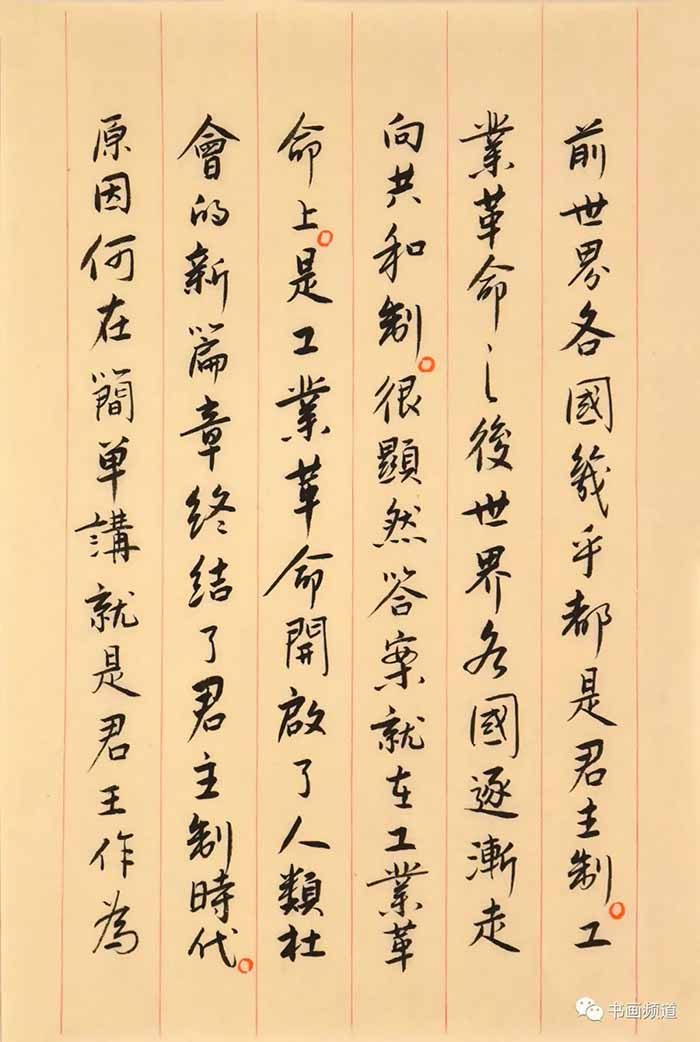 前世界各國幾乎都是君主制。工
業革命之後世界各國逐漸走
向共和制。很顯然答案就在工業革
命上。是工業革命開啟了人類社
會的新篇章终结了君主制時代。
原因何在簡单講就是君王作為
书画频道